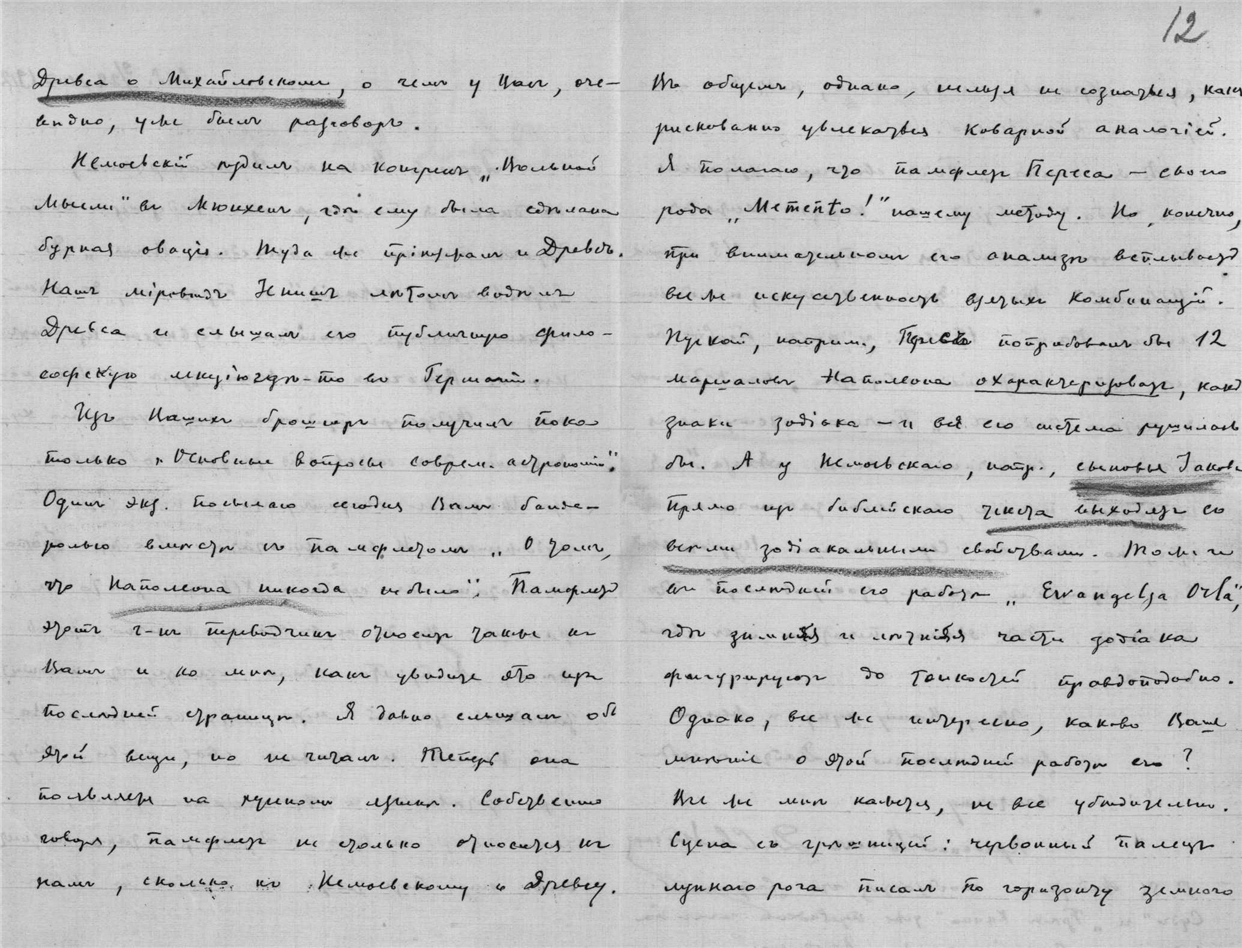 12
Древса о Михайловскомъ, о чемъ у Васъ, оче-
видно, уже былъ разговоръ.
Немоевскій ѣздилъ на конгрессъ „Вольной
Мысли" въ Мюнхенъ, гдѣ ему была сдѣлана
бурная овація. Туда же пріѣхалъ и Древсъ.
Нашъ міровѣдъ лѣтомъ видѣлъ
Древса и слышалъ его публичную фило-
софскую лекцію гдѣ-то въ Германіи.
Изъ Нашихъ брошюръ получилъ пока
только „Основные вопросы соврем. астрономіи".
Одинъ экз. посылаю сегодня Вамъ банде-
ролью вмѣстѣ съ памфлетомъ „О томъ,
что Наполеона никогда не было". Памфлетъ
этотъ г-нъ переводчикъ относитъ также къ
Вамъ и ко мнѣ, какъ увидите это изъ
послѣдней страницы. Я давно слышалъ объ
этой вещи, но не читалъ. Теперь она
появляется на русскомъ языкѣ. Собственно
говоря, памфлетъ не столько относится къ
намъ, сколько къ Немоевскому и Древсу.
Въ общемъ, однако, нельзя не сознаться, какъ
рискованно увлекаться коварной аналогіей.
Я полагаю, что памфлетъ Переса — своего
рода „Memento!" нашему методу. Но, конечно,
при внимательномъ его анализѣ всплываетъ
все же искусственность взятыхъ комбинацій.
Пускай, наприм., Пересъ попробовалъ бы 12
маршаловъ Наполеона охарактеризовать, какъ
знаки зодіака — и вся его система рушилась
бы. А у Немоевскаго, напр., сыновья Іакова
прямо изъ библейскаго текста выходятъ со
всѣми зодіакальными свойствами. Тоже и
въ послѣдней его работѣ „Ewangelja Orła",
гдѣ зимняя и лѣтняя части зодіака
фигурируютъ до тонкостей правдоподобно.
Однако, все же интересно, каково Ваше
мнѣніе о этой послѣдней работѣ его?
Все же мнѣ кажется, не все убѣдительно.
Сцена съ грѣшницей: червонный палецъ
луннаго рога писалъ по горизонту земного